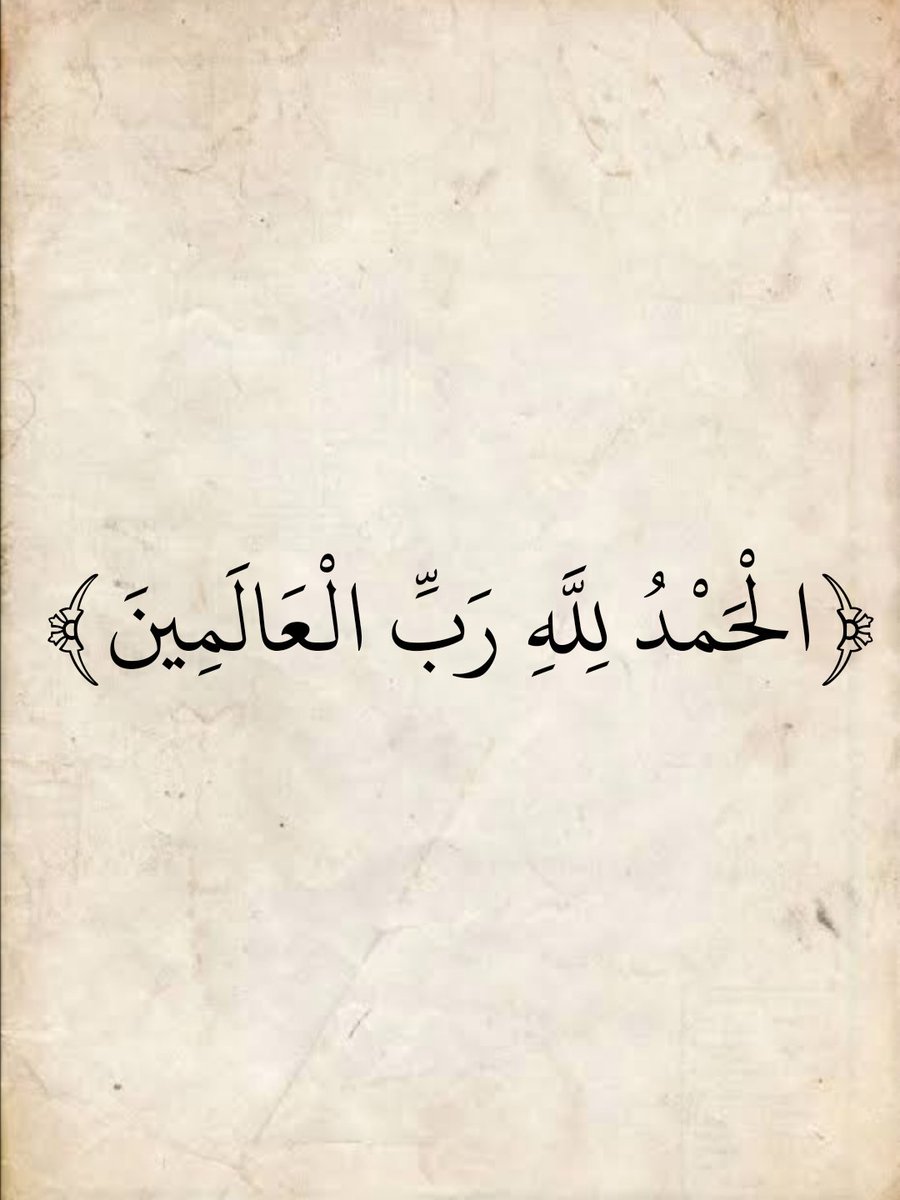 ﴿الْحَمْدُ لِلَّهِ رَبِّ الْعَالَمِينَ﴾